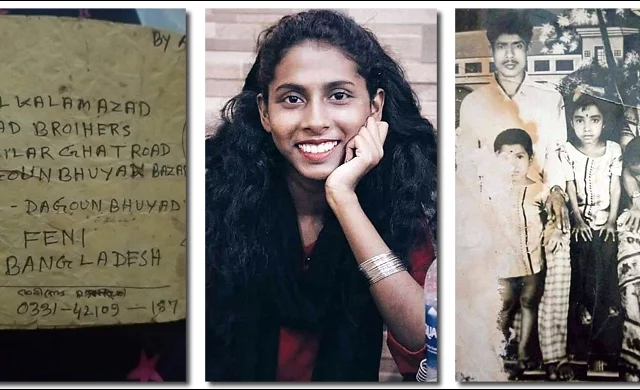 By A
L KALAM AZAD
AD BROTHERS
LAR GHAT ROAD
EOUN BHUYAN BAZA
- DAGOUN BHUYAD
FENI
BANGLADESH
0331-42109 - 187